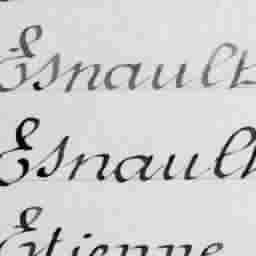 Esnault
Esnault
Etienne